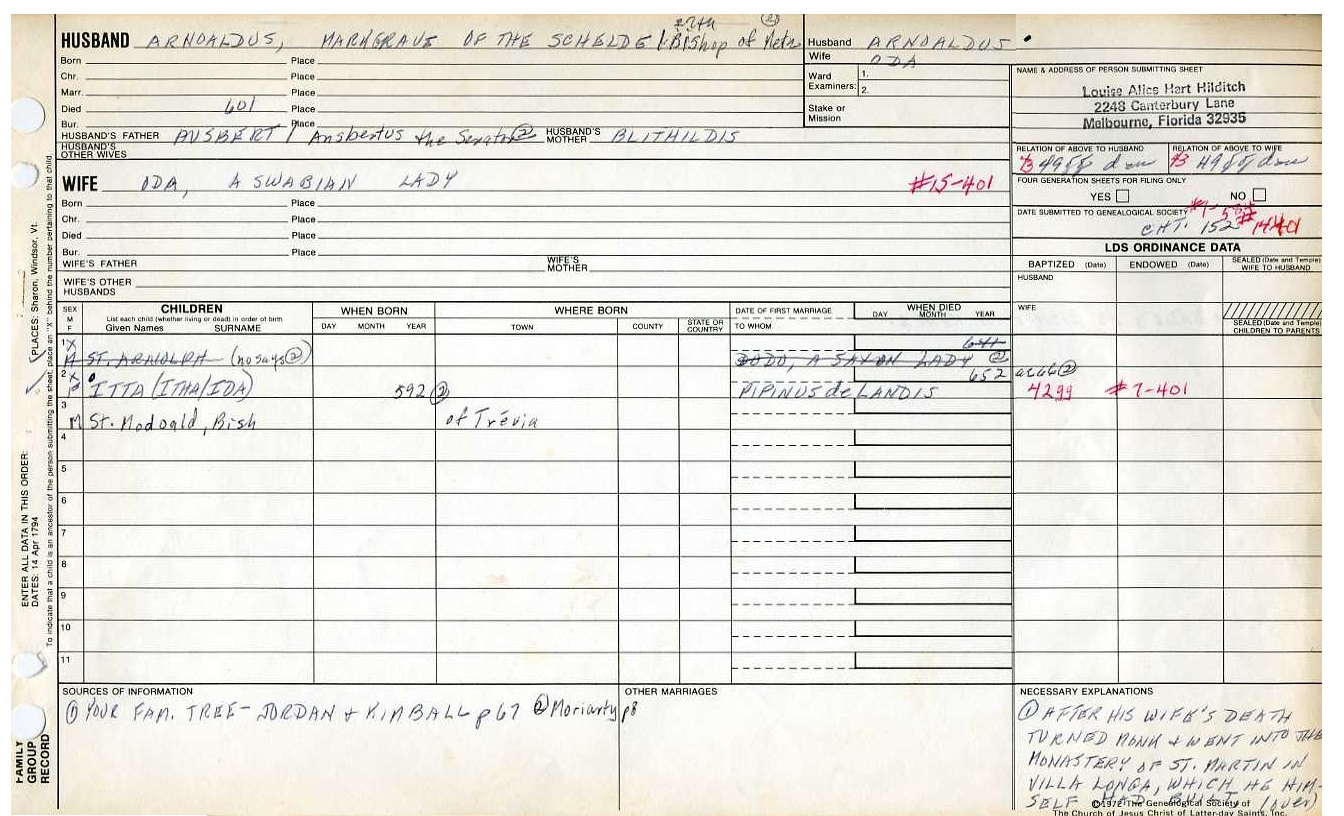 27th (2)
HUSBAND ARNOALDUS, MARKGRAVE OF THE SCHELDE / Bishop of Metz
Husband ARNOALDUS
Wife ODA
Born Place
Chr. Place
Marr. Place
Died 601 Place
Bur. Place
Ward Examiners: 1.
2.
Stake or Mission
NAME & ADDRESS OF PERSON SUBMITTING SHEET
Louise Alice Hart Hilditch
2248 Canterbury Lane
Melbourne, Florida 32935
HUSBAND'S FATHER AUSBERT / Ansbertus the Senator (2) HUSBAND'S MOTHER BLITHILDIS
HUSBAND'S OTHER WIVES
RELATION OF ABOVE TO HUSBAND RELATION OF ABOVE TO WIFE
WIFE ODA, A SWABIAN LADY #15-401
Born Place
Chr. Place
Died Place
Bur. Place
FOUR GENERATION SHEETS FOR FILING ONLY
YES NO
DATE SUBMITTED TO GENEALOGICAL SOCIETY
CHT. 152
WIFE'S FATHER WIFE'S MOTHER
WIFE'S OTHER HUSBANDS
LDS ORDINANCE DATA
BAPTIZED (Date) ENDOWED (Date) SEALED (Date and Temple) WIFE TO HUSBAND
HUSBAND
WIFE
SEALED (Date and Temple) CHILDREN TO PARENTS
SEX M F
CHILDREN
List each child (whether living or dead) in order of birth
Given Names SURNAME
WHEN BORN
DAY MONTH YEAR
WHERE BORN
TOWN COUNTY STATE OR COUNTRY
DATE OF FIRST MARRIAGE
TO WHOM
WHEN DIED
DAY MONTH YEAR
1 X M ST. ARNOLPH (no says (2)) 641 DODO, A SAXON LADY (2)
2 X F ITTA (ITHA/IDA) 592 (2) 652 PIPINUS de LANDIS 4299 #7-401
3 M St. Modoald, Bish of Trévia
4
5
6
7
8
9
10
11
SOURCES OF INFORMATION
(1) YOUR FAM. TREE - JORDAN & KIMBALL p 67 (2) Moriarty p8
OTHER MARRIAGES
NECESSARY EXPLANATIONS
(1) AFTER HIS WIFE'S DEATH
TURNED MONK & WENT INTO THE
MONASTERY OF ST. MARTIN IN
VILLA LONGA, WHICH HE HIM-
SELF HAD BUILT (over)
©1972 The Genealogical Society of
The Church of Jesus Christ of Latter-day Saints, Inc.
PLACES: Sharon, Windsor, Vt.
ENTER ALL DATA IN THIS ORDER:
DATES: 14 Apr 1794
To indicate that a child is an ancestor of the person submitting the sheet, place an "X" behind the number pertaining to that child.
FAMILY
GROUP
RECORD